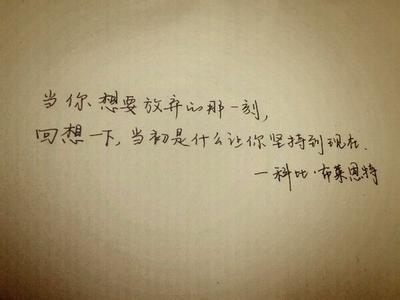 当你想要放弃的那一刻,
回想一下,当初是什么让你坚持到现在.
—科比·布莱恩特